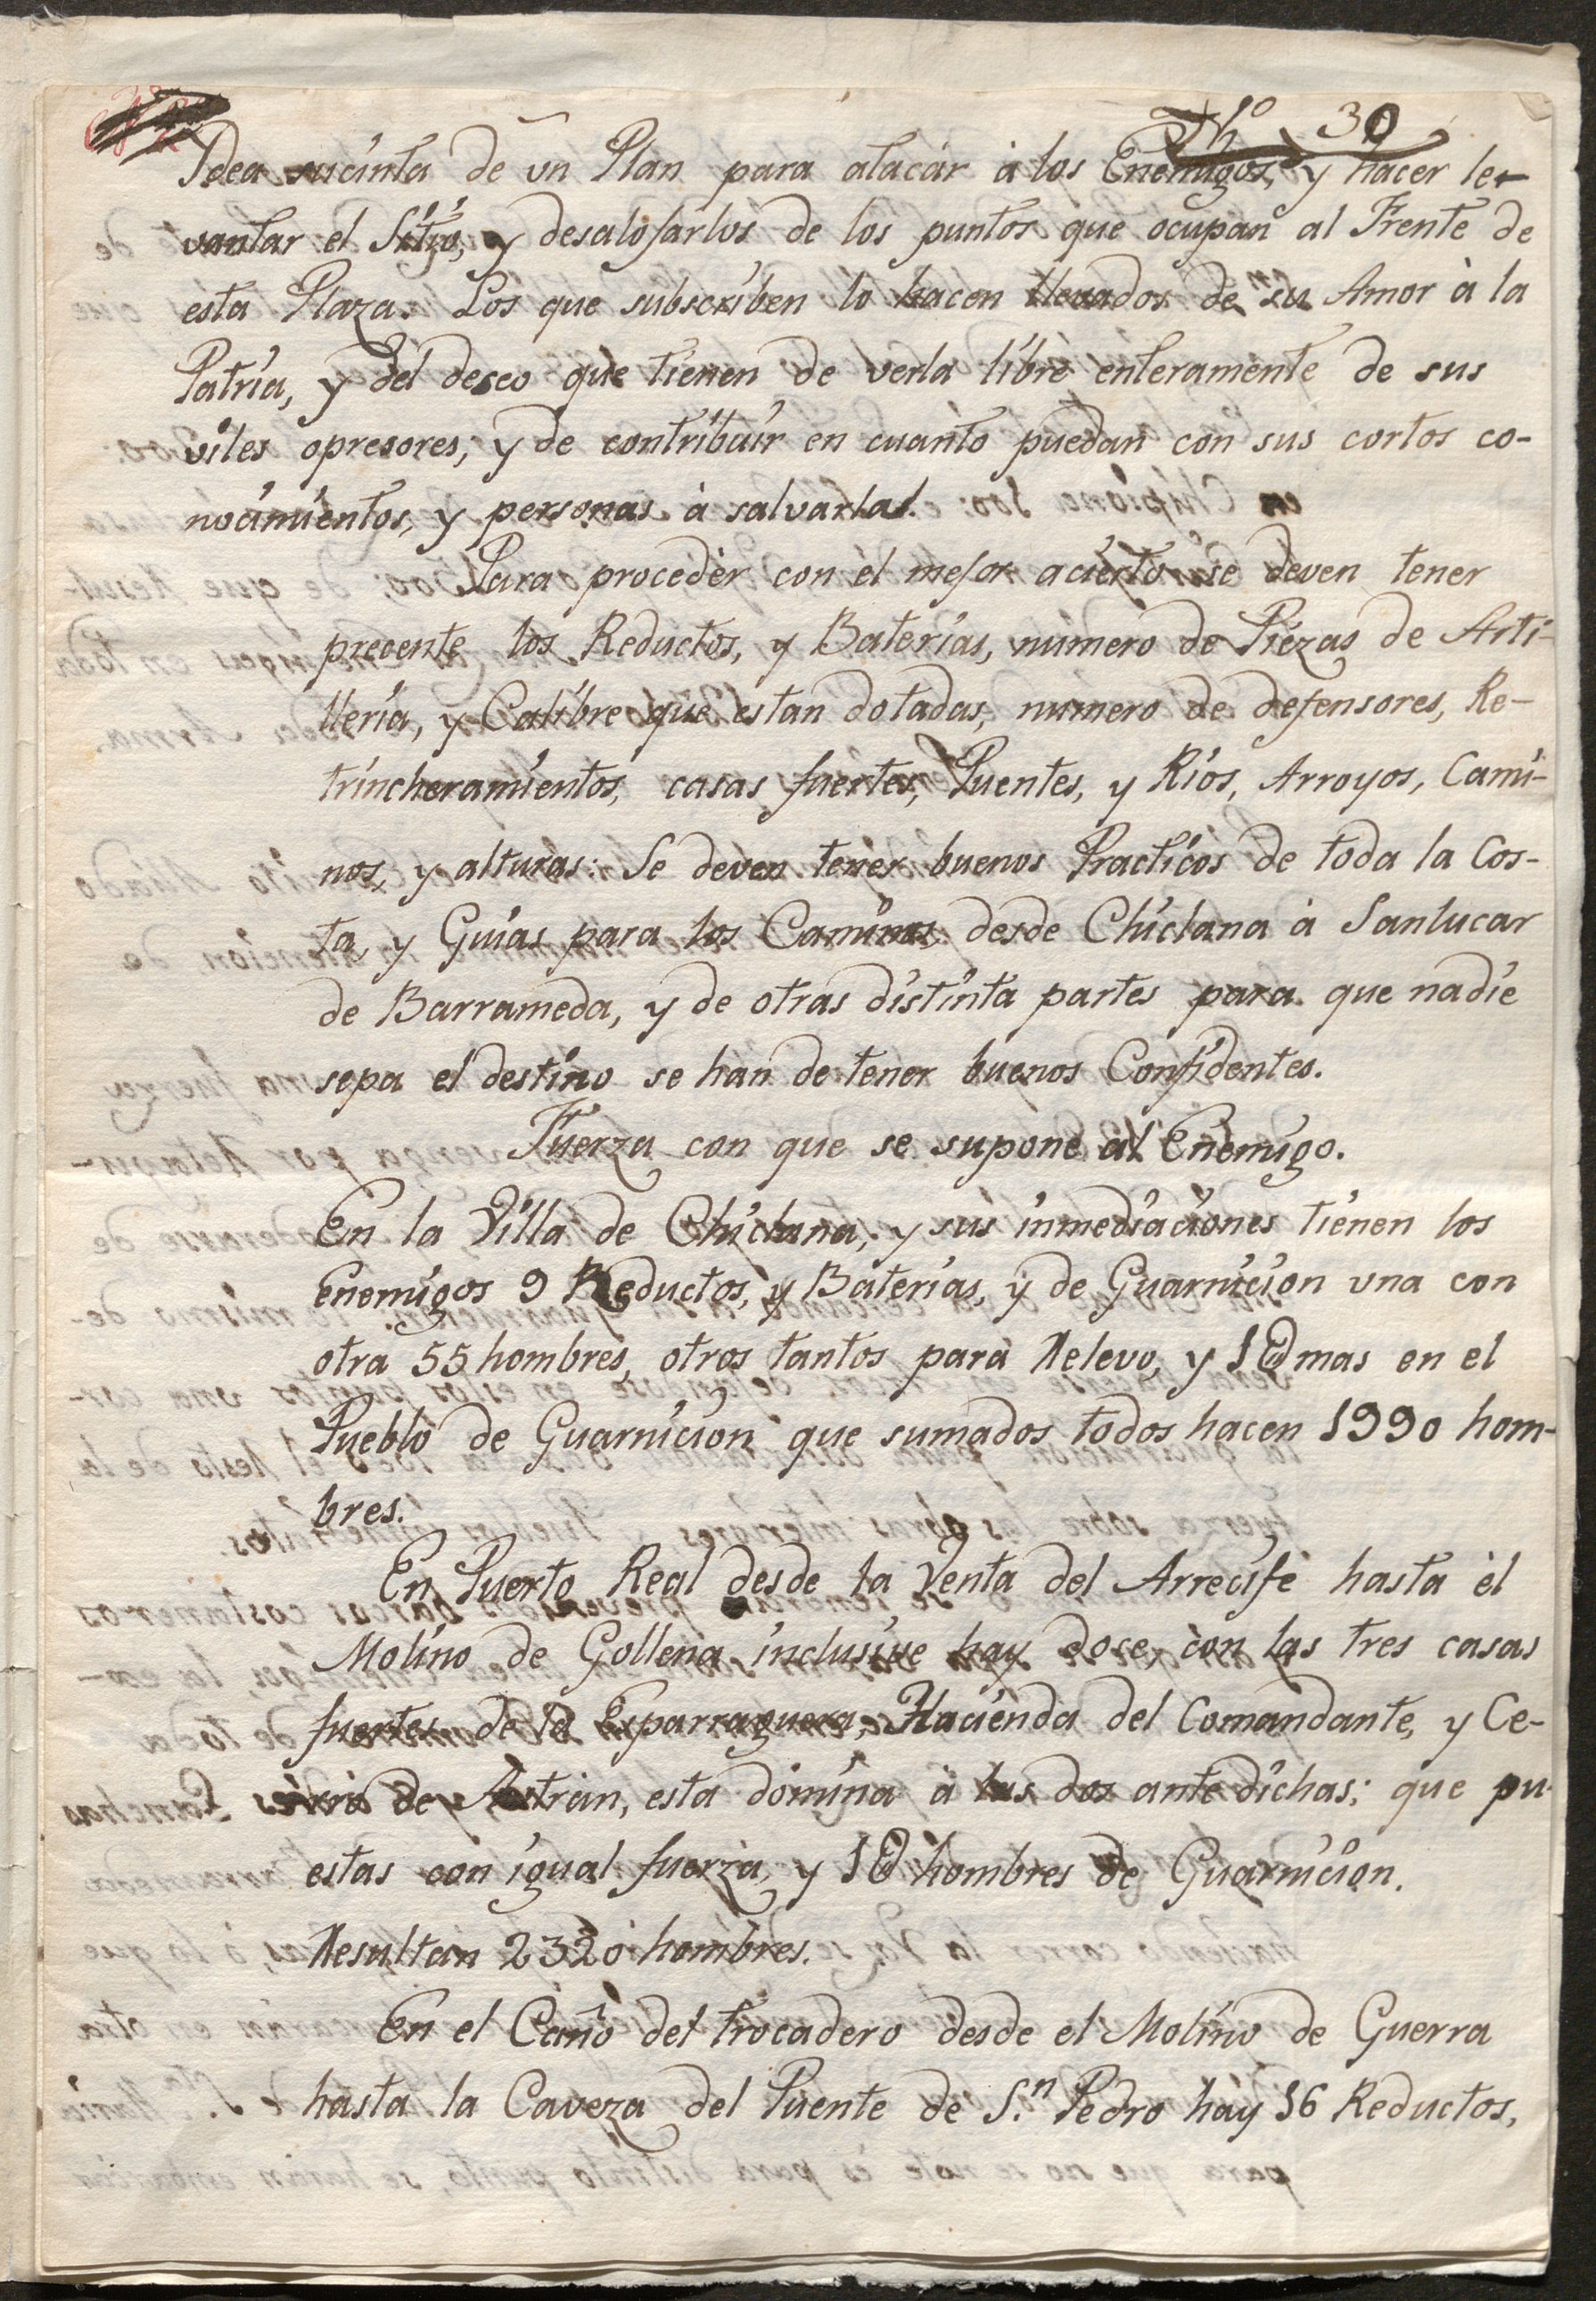 Nº 30
Idea sucinta de vn Plan para atacár à los Enemigos, y hacer le-
vantar el Sitio, y desalojarlos de los puntos que ocupan al Frente de
esta Plaza. Los que subscriben lo hacen llevados de su Amor à la
Patria, y del deseo que tienen de verla libre enteramente de sus
viles opresores; y de contribuir en cuanto puedan con sus cortos co-
nocimientos, y personas à salvarla.
Para procedèr con èl mejor acierto se deven tener
precente los Reductos, y Baterias, número de Piezas de Arti-
lleria, y Calibre que estan dotadas, número de defensores, Re-
trincheramientos, casas fuertes, Puentes, y Rios, Arroyos, Cami-
nos, y alturas: Se deven tener buenos Practicos de toda la Cos-
ta, y Guias para los Caminos desde Chiclana à Sanlucar
de Barrameda, y de otras distinta partes para que nadie
sepa el destino se han de tener buenos Confidentes.
Fuerza con que se supone al Enemigo.
En la Villa de Chiclana, y sus inmediaciones tienen los
Enemigos 9 Reductos, y Baterias, y de Guarnicion vna con
otra 55 hombres, otros tantos para Relevo, y 1@ mas en el
Pueblo de Guarnicion que sumados todos hacen 1990 hom-
bres.
En Puerto Real desde la Venta del Arrecife hasta èl
Molino de Gollena inclusive hay doce, con las tres casas
fuertes de la Esparraguera, Hacienda del Comandante, y Ce-
de esta domina à las dos ante dichas; que pu-
estas con igual fuerza, y 1@ hombres de Guarnicion.
Resultan 2320 hombres.
En el Caño del trocadero desde el Molino de Guerra
hasta la Caveza del Puente de S.n Pedro hay 16 Reductos,